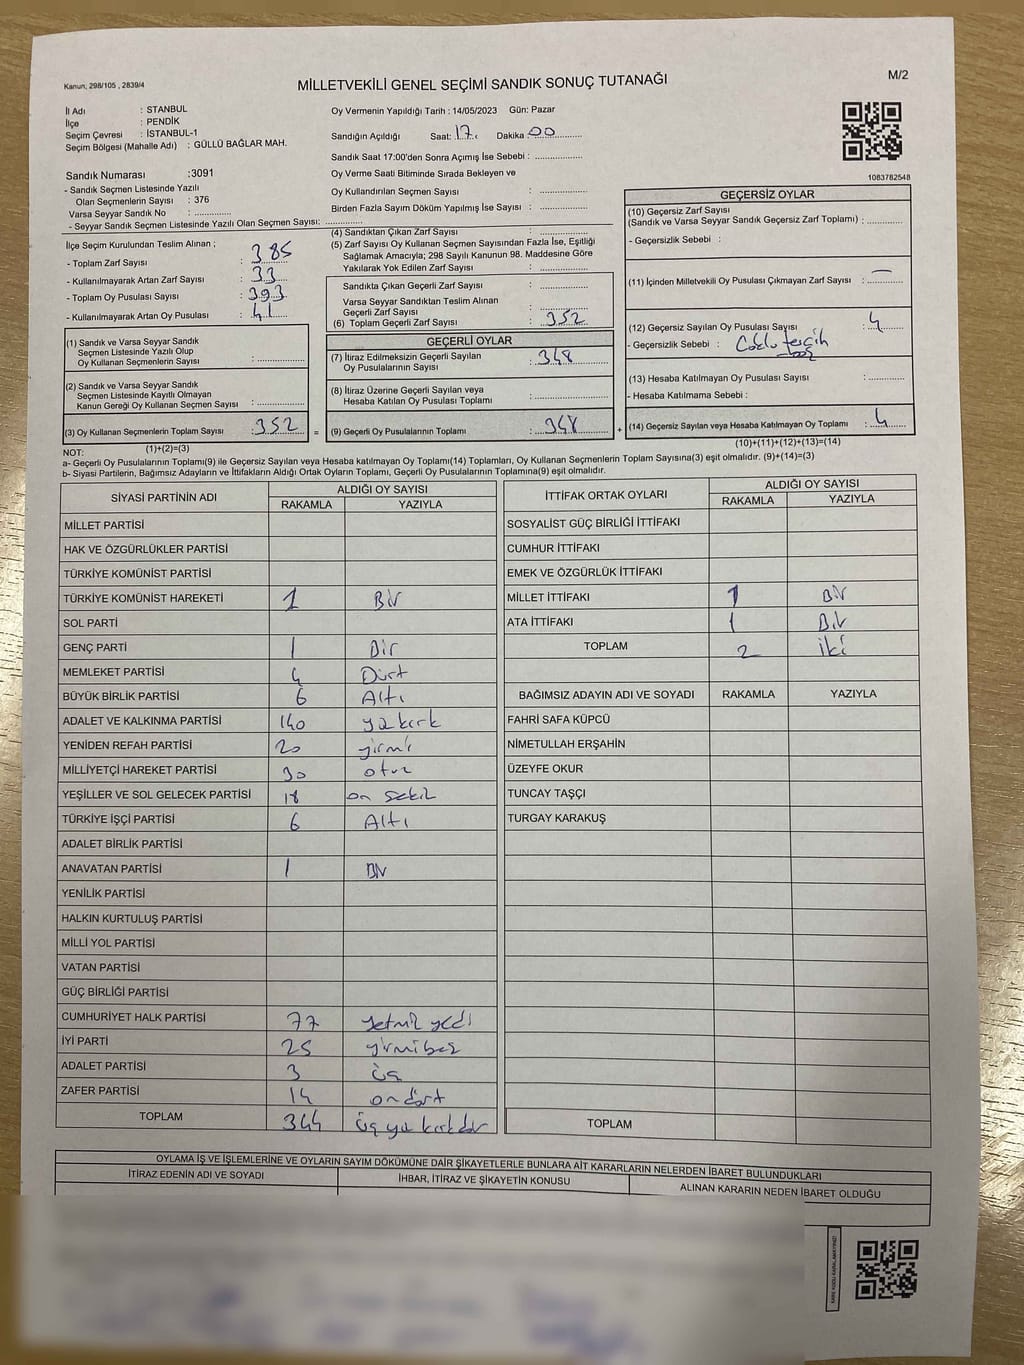 Kanun; 298/105 , 2839/4
MİLLETVEKİLİ GENEL SEÇİMİ SANDIK SONUÇ TUTANAĞI
M/2
İl Adı : STANBUL
İlçe : PENDİK
Seçim Çevresi : İSTANBUL-1
Seçim Bölgesi (Mahalle Adı) : GÜLLÜ BAĞLAR MAH.
Oy Vermenin Yapıldığı Tarih : 14/05/2023 Gün: Pazar
Sandığın Açıldığı Saat: 17 Dakika 00
Sandık Saat 17:00'den Sonra Açımış İse Sebebi :
Oy Verme Saati Bitiminde Sırada Bekleyen ve
Oy Kullandırılan Seçmen Sayısı :
Birden Fazla Sayım Döküm Yapılmış İse Sayısı :
1083782548
Sandık Numarası :3091
- Sandık Seçmen Listesinde Yazılı
Olan Seçmenlerin Sayısı : 376
Varsa Seyyar Sandık No :
- Seyyar Sandık Seçmen Listesinde Yazılı Olan Seçmen Sayısı:
İlçe Seçim Kurulundan Teslim Alınan ;
- Toplam Zarf Sayısı : 385
- Kullanılmayarak Artan Zarf Sayısı : 33
- Toplam Oy Pusulası Sayısı : 393
- Kullanılmayarak Artan Oy Pusulası : 41
(1) Sandık ve Varsa Seyyar Sandık
Seçmen Listesinde Yazılı Olup
Oy Kullanan Seçmenlerin Sayısı :
(2) Sandık ve Varsa Seyyar Sandık
Seçmen Listesinde Kayıtlı Olmayan
Kanun Gereği Oy Kullanan Seçmen Sayısı :
(3) Oy Kullanan Seçmenlerin Toplam Sayısı : 352
(1)+(2)=(3)
(4) Sandıktan Çıkan Zarf Sayısı :
(5) Zarf Sayısı Oy Kullanan Seçmen Sayısından Fazla İse, Eşitliği
Sağlamak Amacıyla; 298 Sayılı Kanunun 98. Maddesine Göre
Yakılarak Yok Edilen Zarf Sayısı :
Sandıkta Çıkan Geçerli Zarf Sayısı :
Varsa Seyyar Sandıktan Teslim Alınan
Geçerli Zarf Sayısı :
(6) Toplam Geçerli Zarf Sayısı : 352
GEÇERLİ OYLAR
(7) İtiraz Edilmeksizin Geçerli Sayılan
Oy Pusulalarının Sayısı : 348
(8) İtiraz Üzerine Geçerli Sayılan veya
Hesaba Katılan Oy Pusulası Toplamı :
= (9) Geçerli Oy Pusulalarının Toplamı : 348 +
GEÇERSİZ OYLAR
(10) Geçersiz Zarf Sayısı
(Sandık ve Varsa Seyyar Sandık Geçersiz Zarf Toplamı) :
- Geçersizlik Sebebi :
(11) İçinden Milletvekili Oy Pusulası Çıkmayan Zarf Sayısı : —
(12) Geçersiz Sayılan Oy Pusulası Sayısı : 4
- Geçersizlik Sebebi : tercih
(13) Hesaba Katılmayan Oy Pusulası Sayısı :
- Hesaba Katılmama Sebebi :
(14) Geçersiz Sayılan veya Hesaba Katılmayan Oy Toplamı : 4
(10)+(11)+(12)+(13)=(14)
NOT:
a- Geçerli Oy Pusulalarının Toplamı(9) ile Geçersiz Sayılan veya Hesaba katılmayan Oy Toplamı(14) Toplamları, Oy Kullanan Seçmenlerin Toplam Sayısına(3) eşit olmalıdır. (9)+(14)=(3)
b- Siyasi Partilerin, Bağımsız Adayların ve İttifakların Aldığı Ortak Oyların Toplamı, Geçerli Oy Pusulalarının Toplamına(9) eşit olmalıdır.
SİYASİ PARTİNİN ADI ALDIĞI OY SAYISI
RAKAMLA YAZIYLA
MİLLET PARTİSİ
HAK VE ÖZGÜRLÜKLER PARTİSİ
TÜRKİYE KOMÜNİST PARTİSİ
TÜRKİYE KOMÜNİST HAREKETİ 1 Bir
SOL PARTİ
GENÇ PARTİ 1 Bir
MEMLEKET PARTİSİ 4 Dört
BÜYÜK BİRLİK PARTİSİ 6 Altı
ADALET VE KALKINMA PARTİSİ 140 yüzkırk
YENİDEN REFAH PARTİSİ 20 yirmi
MİLLİYETÇİ HAREKET PARTİSİ 30 otuz
YEŞİLLER VE SOL GELECEK PARTİSİ 18 on sekiz
TÜRKİYE İŞÇİ PARTİSİ 6 Altı
ADALET BİRLİK PARTİSİ
ANAVATAN PARTİSİ 1 Bir
YENİLİK PARTİSİ
HALKIN KURTULUŞ PARTİSİ
MİLLİ YOL PARTİSİ
VATAN PARTİSİ
GÜÇ BİRLİĞİ PARTİSİ
CUMHURİYET HALK PARTİSİ 77 yetmiş yedi
İYİ PARTİ 25 yirmibeş
ADALET PARTİSİ 3 üç
ZAFER PARTİSİ 14 ondört
TOPLAM 344 üçyüzkırkdör
İTTİFAK ORTAK OYLARI ALDIĞI OY SAYISI
RAKAMLA YAZIYLA
SOSYALİST GÜÇ BİRLİĞİ İTTİFAKI
CUMHUR İTTİFAKI
EMEK VE ÖZGÜRLÜK İTTİFAKI
MİLLET İTTİFAKI 1 Bir
ATA İTTİFAKI 1 Bir
TOPLAM 2 iki
BAĞIMSIZ ADAYIN ADI VE SOYADI RAKAMLA YAZIYLA
FAHRİ SAFA KÜPCÜ
NİMETULLAH ERŞAHİN
ÜZEYFE OKUR
TUNCAY TAŞÇI
TURGAY KARAKUŞ
TOPLAM
OYLAMA İŞ VE İŞLEMLERİNE VE OYLARIN SAYIM DÖKÜMÜNE DAİR ŞİKAYETLERLE BUNLARA AİT KARARLARIN NELERDEN İBARET BULUNDUKLARI
İTİRAZ EDENİN ADI VE SOYADI İHBAR, İTİRAZ VE ŞİKAYETİN KONUSU ALINAN KARARIN NEDEN İBARET OLDUĞU